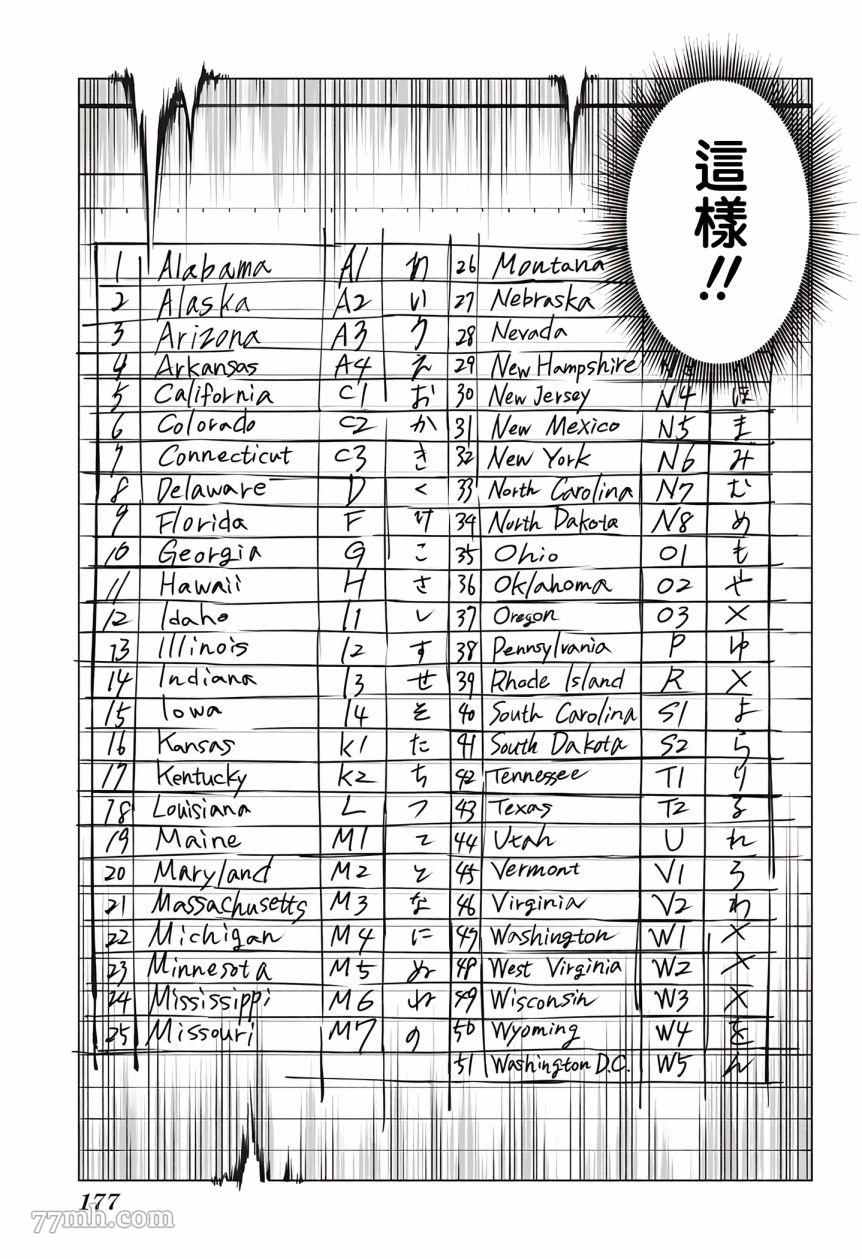 這樣!!
1 Alabama A1 26 Montana
2 Alaska A2 い 27 Nebraska
3 Arizona A3 う 28 Nevada
4 Arkansas A4 え 29 New Hampshire
5 California C1 お 30 New Jersey N4 ほ
6 Colorado C2 か 31 New Mexico N5 ま
7 Connecticut C3 き 32 New York N6 み
8 Delaware D く 33 North Carolina N7 む
9 Florida F け 34 North Dakota N8 め
10 Georgia G こ 35 Ohio O1 も
11 Hawaii H さ 36 Oklahoma O2 や
12 Idaho I1 し 37 Oregon O3 ×
13 Illinois I2 す 38 Pennsylvania P ゆ
14 Indiana I3 せ 39 Rhode Island R ×
15 Iowa I4 そ 40 South Carolina S1 よ
16 Kansas K1 た 41 South Dakota S2 ら
17 Kentucky K2 ち 42 Tennessee T1 り
18 Louisiana L つ 43 Texas T2 る
19 Maine M1 て 44 Utah U れ
20 Maryland M2 と 45 Vermont V1 ろ
21 Massachusetts M3 な 46 Virginia V2 わ
22 Michigan M4 に 47 Washington W1 ×
23 Minnesota M5 ぬ 48 West Virginia W2 ×
24 Mississippi M6 ね 49 Wisconsin W3 ×
25 Missouri M7 の 50 Wyoming W4 を
51 Washington D.C. W5 ん
177
77mh.com